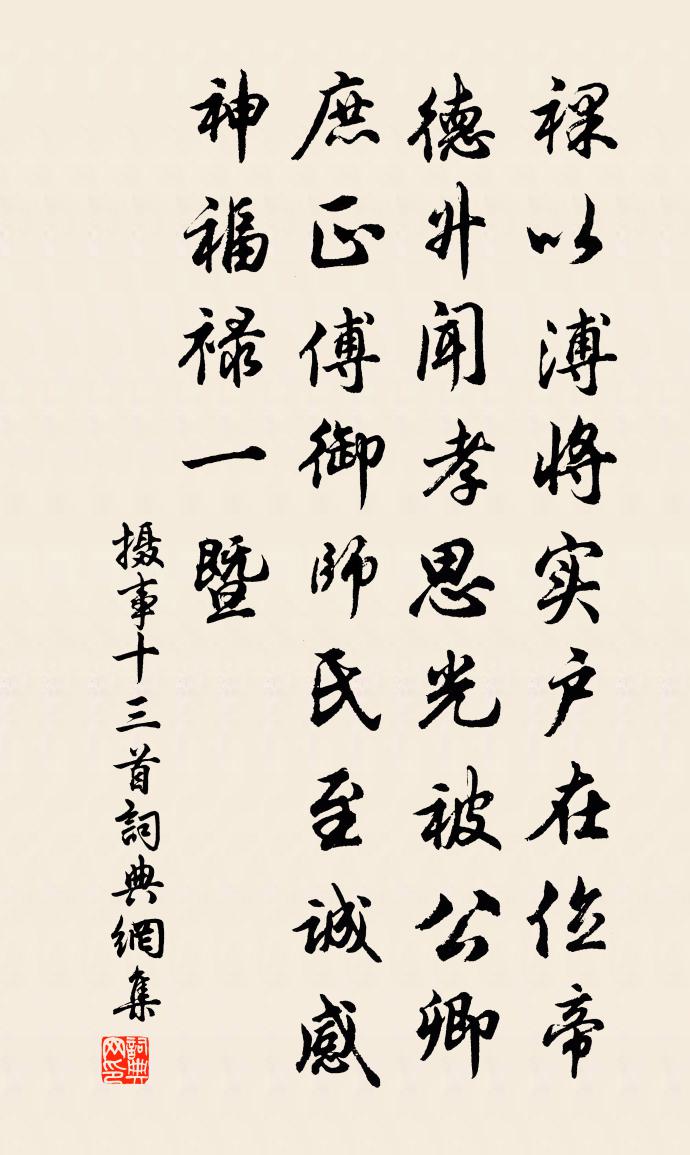 祼以溥将实户在俭帝
德升闻孝思光被公卿
庶正傅御師氏至诚感
神福禄一暨
摄事十三首詞典網集
詞典网印